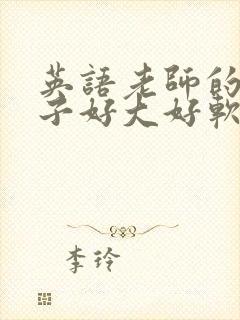 英語老師的
子好大好軟
李玲